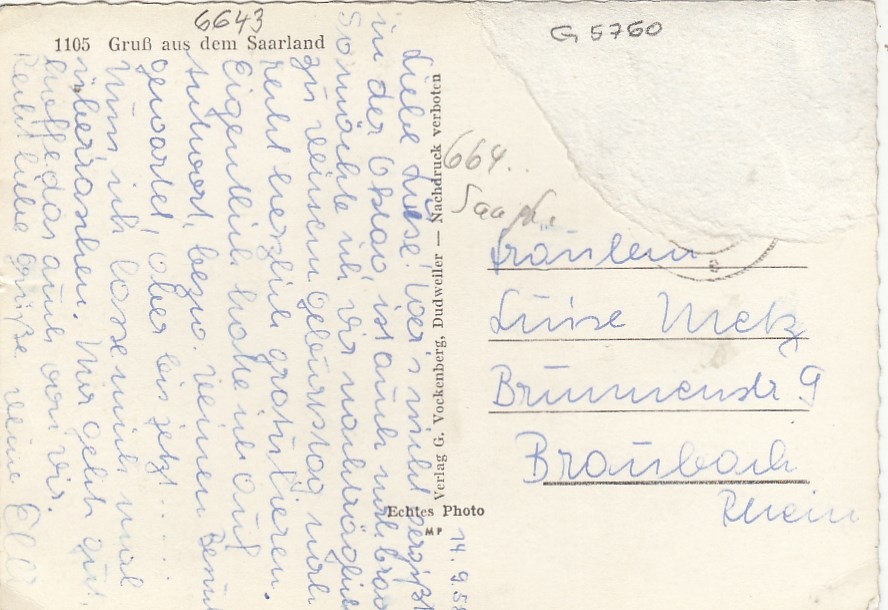 6643
G 5760
1105 Gruß aus dem Saarland
Liebe Luise! Wer's nicht vergißt
in der Ostao, ist auch noch brav
So möchte ich dir nachträglich
zu deinem Geburtstag noch
recht herzlich gratulieren.
Eigentlich hatte ich auf
Antwort, bezw. deinen Besuch
gewartet, aber bis jetzt .....
Nun ich lasse mich mal
überraschen. Mir geht's gut,
hoffe das auch von dir.
Recht liebe Grüße deine
Verlag G. Vockenberg, Dudweiler — Nachdruck verboten
Echtes Photo
MP
14.9.5
664..
Fräulein
Luise Metz
Brunnenstr 9
Braubach
Rhein